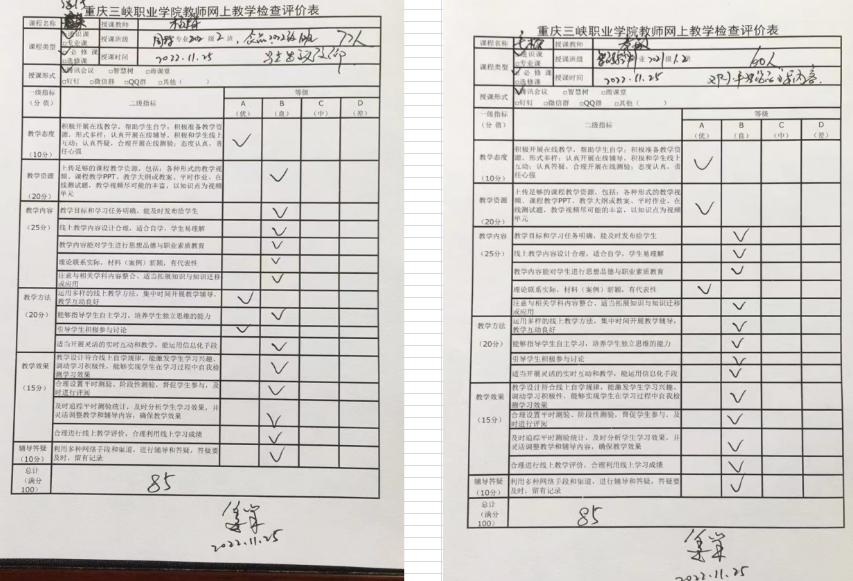 重庆三峡职业学院教师网上教学检查评价表
课程名称
授课教师
课程类型
通识课
□专业课
必修课
□选修课
授课班级
专业
班
77人
授课时间
2022.11.25
授课形式
腾讯会议 □智慧树 □雨课堂
□钉钉 □微信群 □QQ群 □其他（ ）
一级指标
（分 值）
二级指标
等级
A
（优）
B
（良）
C
（中）
D
（差）
教学态度
（10分）
积极开展在线教学，帮助学生自学；积极准备教学资
源，形式多样；认真开展在线辅导，积极和学生线上
互动；认真答疑，合理开展在线测验；态度认真，责
任心强
教学资源
（20分）
上传足够的课程教学资源，包括：各种形式的教学视
频、课程教学PPT、教学大纲或教案、平时作业、在
线测试题，教学视频尽可能的丰富，以知识点为视频
单元
教学内容
（25分）
教学目标和学习任务明确，能及时发布给学生
线上教学内容设计合理，适合自学，学生易理解
教学内容能对学生进行思想品德与职业素质教育
理论联系实际，材料（案例）新颖，有代表性
注意与相关学科内容整合、适当拓展知识与知识迁移
或应用
教学方法
（20分）
运用多样的线上教学方法，集中时间开展教学辅导，
教学互动良好
能够指导学生自主学习，培养学生独立思维的能力
引导学生积极参与讨论
适当开展灵活的实时互动和教学，能运用信息化手段
教学效果
（15分）
教学设计符合线上自学规律，能激发学生学习兴趣、
调动学习积极性，能够实现学生在学习过程中自我检
测学习效果
合理设置平时测验、阶段性测验，督促学生参与，及
时进行评阅
及时追踪平时测验统计，及时分析学生学习效果，并
灵活调整教学和辅导内容，确保教学效果
合理进行线上教学评价，合理利用线上学习成绩
辅导答疑
（10分）
利用多种网络手段和渠道，进行辅导和答疑，答疑要
及时，留有记录
总计
（满分
100）
85
2022.11.25
重庆三峡职业学院教师网上教学检查评价表
课程名称
授课教师
课程类型
通识课
□专业课
必修课
□选修课
授课班级
班
60人
授课时间
2022.11.25
授课形式
腾讯会议 □智慧树 □雨课堂
□钉钉 □微信群 □QQ群 □其他（ ）
一级指标
（分 值）
二级指标
等级
A
（优）
B
（良）
C
（中）
D
（差）
教学态度
（10分）
积极开展在线教学，帮助学生自学；积极准备教学资
源，形式多样；认真开展在线辅导，积极和学生线上
互动；认真答疑，合理开展在线测验；态度认真，责
任心强
教学资源
（20分）
上传足够的课程教学资源，包括：各种形式的教学视
频、课程教学PPT、教学大纲或教案、平时作业、在
线测试题，教学视频尽可能的丰富，以知识点为视频
单元
教学内容
（25分）
教学目标和学习任务明确，能及时发布给学生
线上教学内容设计合理，适合自学，学生易理解
教学内容能对学生进行思想品德与职业素质教育
理论联系实际，材料（案例）新颖，有代表性
注意与相关学科内容整合、适当拓展知识与知识迁移
或应用
教学方法
（20分）
运用多样的线上教学方法，集中时间开展教学辅导，
教学互动良好
能够指导学生自主学习，培养学生独立思维的能力
引导学生积极参与讨论
适当开展灵活的实时互动和教学，能运用信息化手段
教学效果
（15分）
教学设计符合线上自学规律，能激发学生学习兴趣、
调动学习积极性，能够实现学生在学习过程中自我检
测学习效果
合理设置平时测验、阶段性测验，督促学生参与，及
时进行评阅
及时追踪平时测验统计，及时分析学生学习效果，并
灵活调整教学和辅导内容，确保教学效果
合理进行线上教学评价，合理利用线上学习成绩
辅导答疑
（10分）
利用多种网络手段和渠道，进行辅导和答疑，答疑要
及时，留有记录
总计
（满分
100）
85
2022.11.25